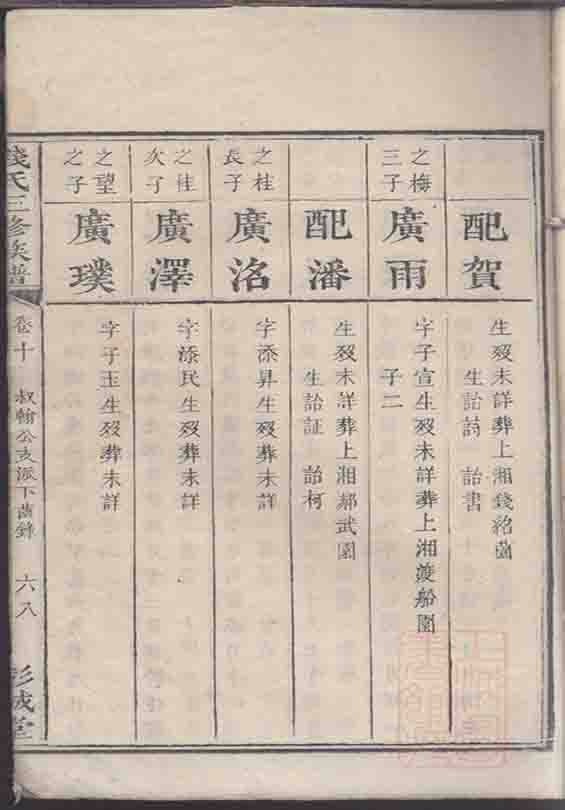 配賀
生歿未詳葬上湘錢
生詒詩 詒書
之梅
三子
廣雨
字子宣生歿未詳葬上湘渡船園
子二
配潘
生歿未詳葬上湘郝武園
生詒証 詒柯
之桂
長子
廣洛
字添昇生歿葬未詳
之桂
次子
廣澤
字添民生歿葬未詳
之望
之子
廣璞
字子玉生歿葬未詳
錢氏三修族譜
卷十
叔翰公支派下齒錄
六八
彭城堂